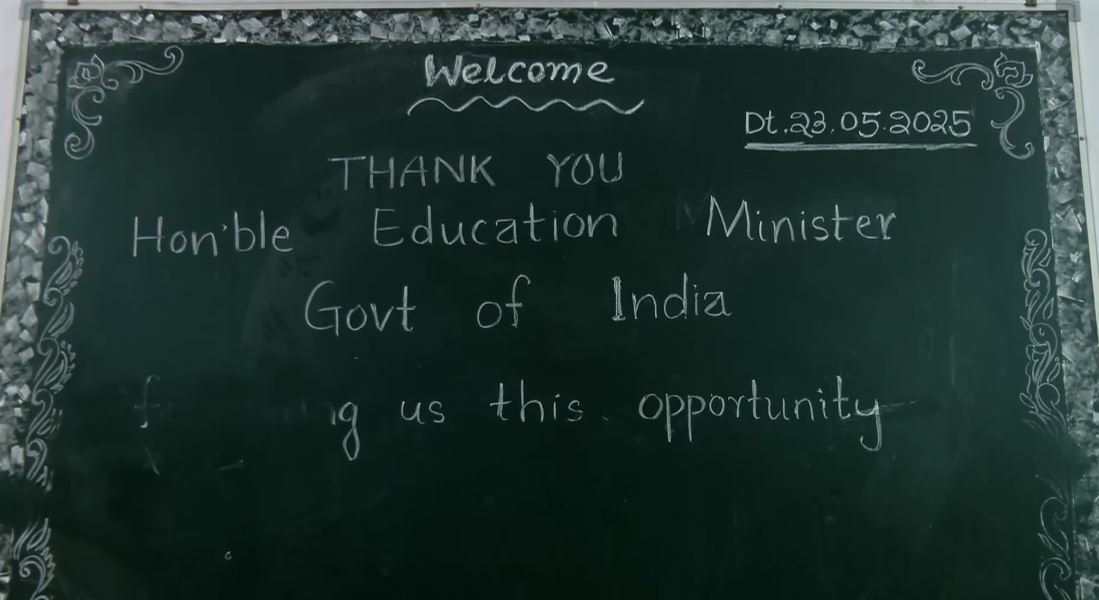 Welcome
Dt.23.05.2025
THANK YOU
Hon'ble Education Minister
Govt of India
us this opportunity